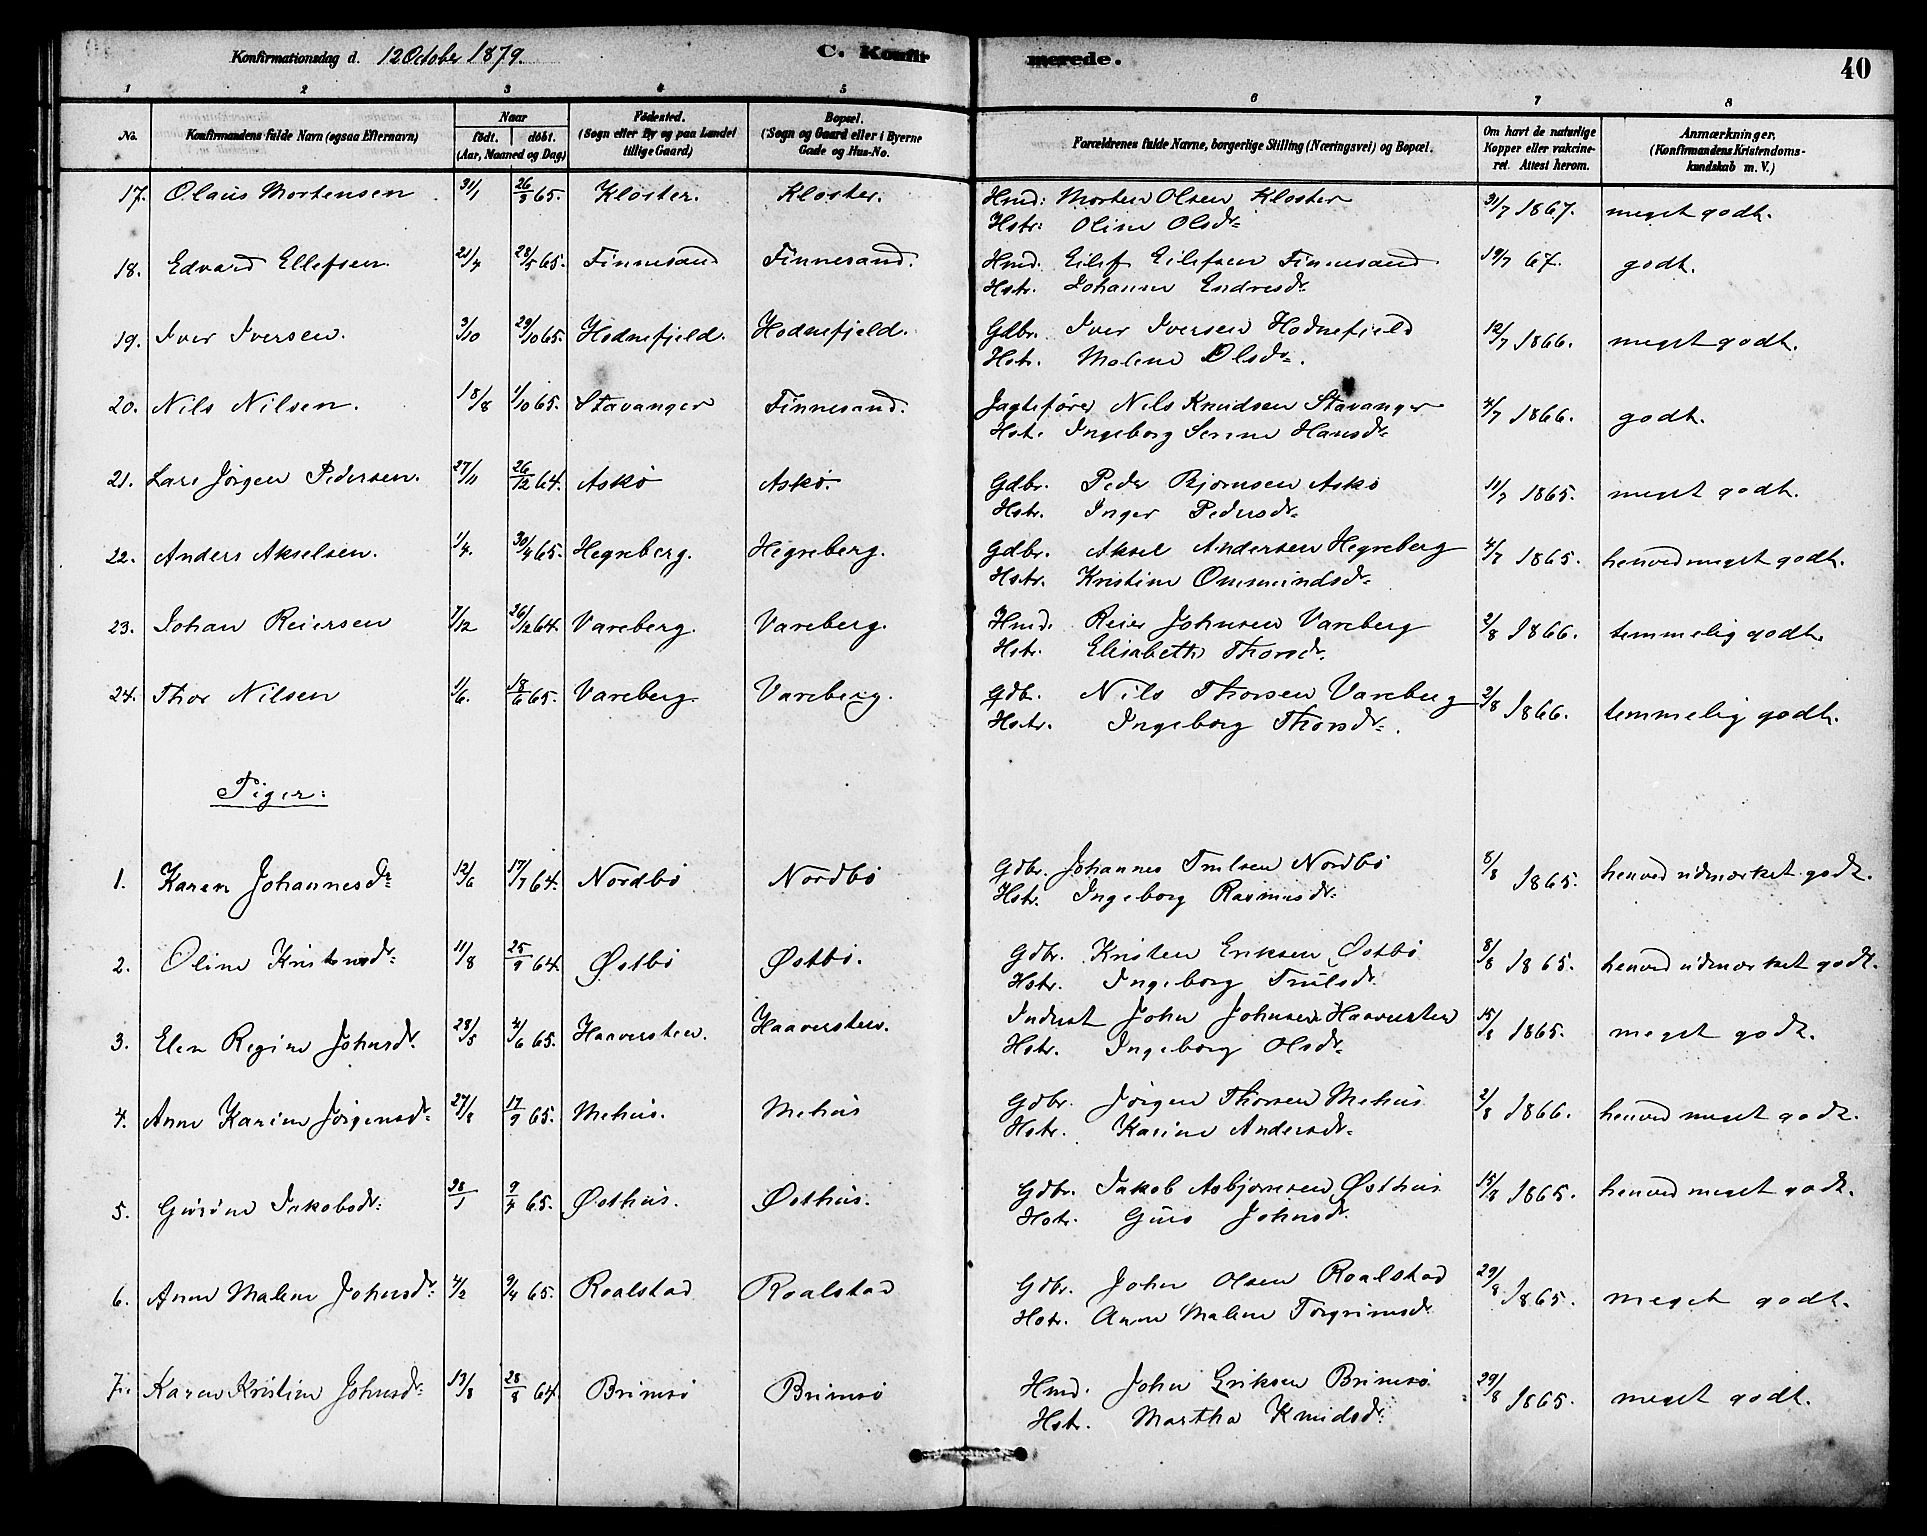 Konfirmationsdag d. 12 October 1879. C. Konfirmerede. 40
1 2 3 4 5 6 7 8
No. Konfirmandens fulde Navn (ogsaa Efternavn) Naar født. døbt. (Aar, Maaned og Dag) Fødested. (Sogn eller By og paa Landet tillige Gaard) Bopæl. (Sogn og Gaard eller i Byerne Gade og Hus-No. Forældrenes fulde Navne, borgerlige Stilling (Næringsvei) og Bopæl. Om havt de naturlige Kopper eller vakcineret. Attest herom. Anmærkninger, (Konfirmandens Kristendomskundskab m. V.)
17. Olaus Mortensen 31/1 26/3 65. Kloster. Kloster. Hmd: Morten Olsen Kloster 31/7 1867. meget godt.
Hstr: Oline Olsdr
18. Edvard Ellefsen 21/4 28/5 65. Finnesand Finnesand. Hmd. Eilef Eilefsen Finnesand 19/7 67. godt.
Hstr. Johanne Endresdr
19. Iver Iversen. 3/10 29/10 65. Hodnefjeld. Hodnefjeld. Gdbr. Iver Iversen Hodnefjeld 12/7 1866. meget godt.
Hstr. Malene Olsdr.
20. Nils Nilsen. 18/8 1/10 65. Stavanger Finnesand. Jagtefører Nils Knudsen Stavanger 4/7 1866. godt.
Hst. Ingeborg Serine Hansdr
21. Lars Jörgen Pedersen. 27/11 26/12 64. Askö Askö. Gdbr. Peder Bjornsen Askö 11/7 1865. meget godt.
Hstr. Inger Pedersdr
22. Anders Akselsen. 1/4. 30/4 65. Hegreberg. Hegreberg. Gdbr. Aksel Andersen Hegreberg 4/7 1865. henved meget godt.
Hstr. Kristine Ommundsdr
23. Johan Reiersen 7/12 26/12 64. Vareberg. Vareberg. Hmd. Reier Johnsen Vareberg 2/8 1866. temmelig godt.
Hstr. Elisabeth Thorsdr.
24. Thor Nilsen 1/6. 18/6 65. Vareberg. Vareberg. Gdb. Nils Thorsen Vareberg 2/8 1866. temmelig godt.
Hstr. Ingeborg Thorsdr.
Piger:
1. Karen Johannesdr 12/6 17/7 64. Nordbö Nordbö Gdbr. Johannes Trulsen Nordbö 8/8 1865. henved udmærket godt.
Hstr. Ingeborg Rasmusdr
2. Oline Kristensdr 11/8 25/9 64. Østbö Østbö. Gdbr. Kristen Eriksen Østbö 8/8 1865. henved udmærket godt.
Hstr. Ingeborg Trulsdr.
3. Elen Regine Johnsdr. 28/5 4/6 65. Haaverstein. Haaverstein. Inderst John Johnsen Haaverstein 15/8 1865. meget godt.
Hstr. Ingeborg Olsdr
4. Anne Karine Jörgensdr 27/8 17/9 65. Mehus. Mehus Gdbr. Jörgen Thorsen Mehus 2/8 1866. henved meget godt.
Hstr. Karine Andersdr.
5. Gurine Jakobsdr. 28/1 9/4 65. Østhus. Østhus. Gdbr. Jakob Asbjornsen Østhus 15/8 1865. henved meget godt.
Hstr. Guro Johnsdr.
6. Anne Malene Johnsdr 4/2 9/4 65. Roalstad Roalstad Gdbr. John Olsen Roalstad 29/8 1865. meget godt.
Hstr. Anne Malene Torgrimsdr
7. Karen Kristine Johnsdr 13/8 28/8 64. Brimsö Brimsö Hmd. John Eriksen Brimsö 29/8 1865. meget godt.
Hstr. Martha Knudsdr.